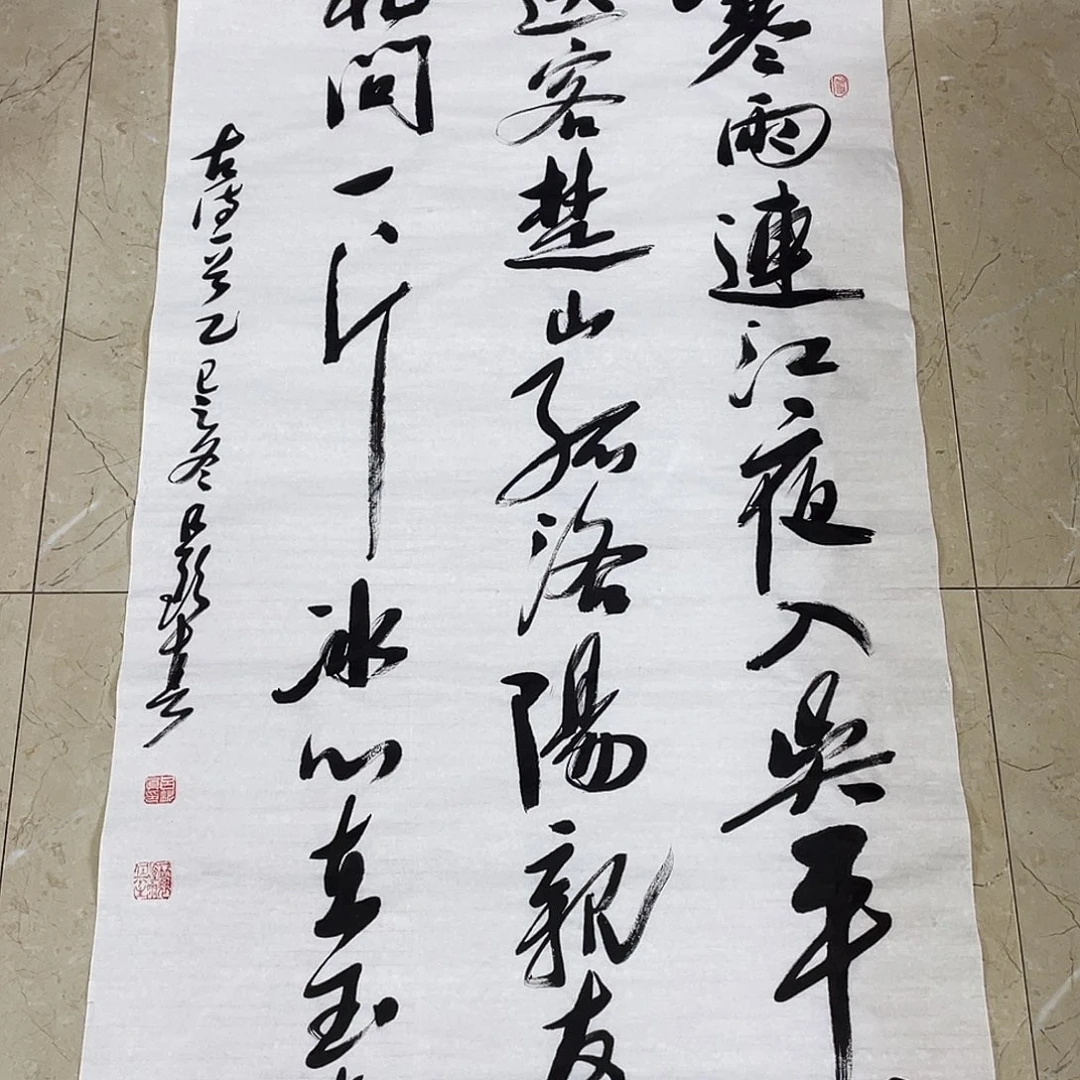 寒雨連江夜入吳平
送客楚山孤洛陽親友
相問一片冰心在玉
古诗一首乙巳之冬